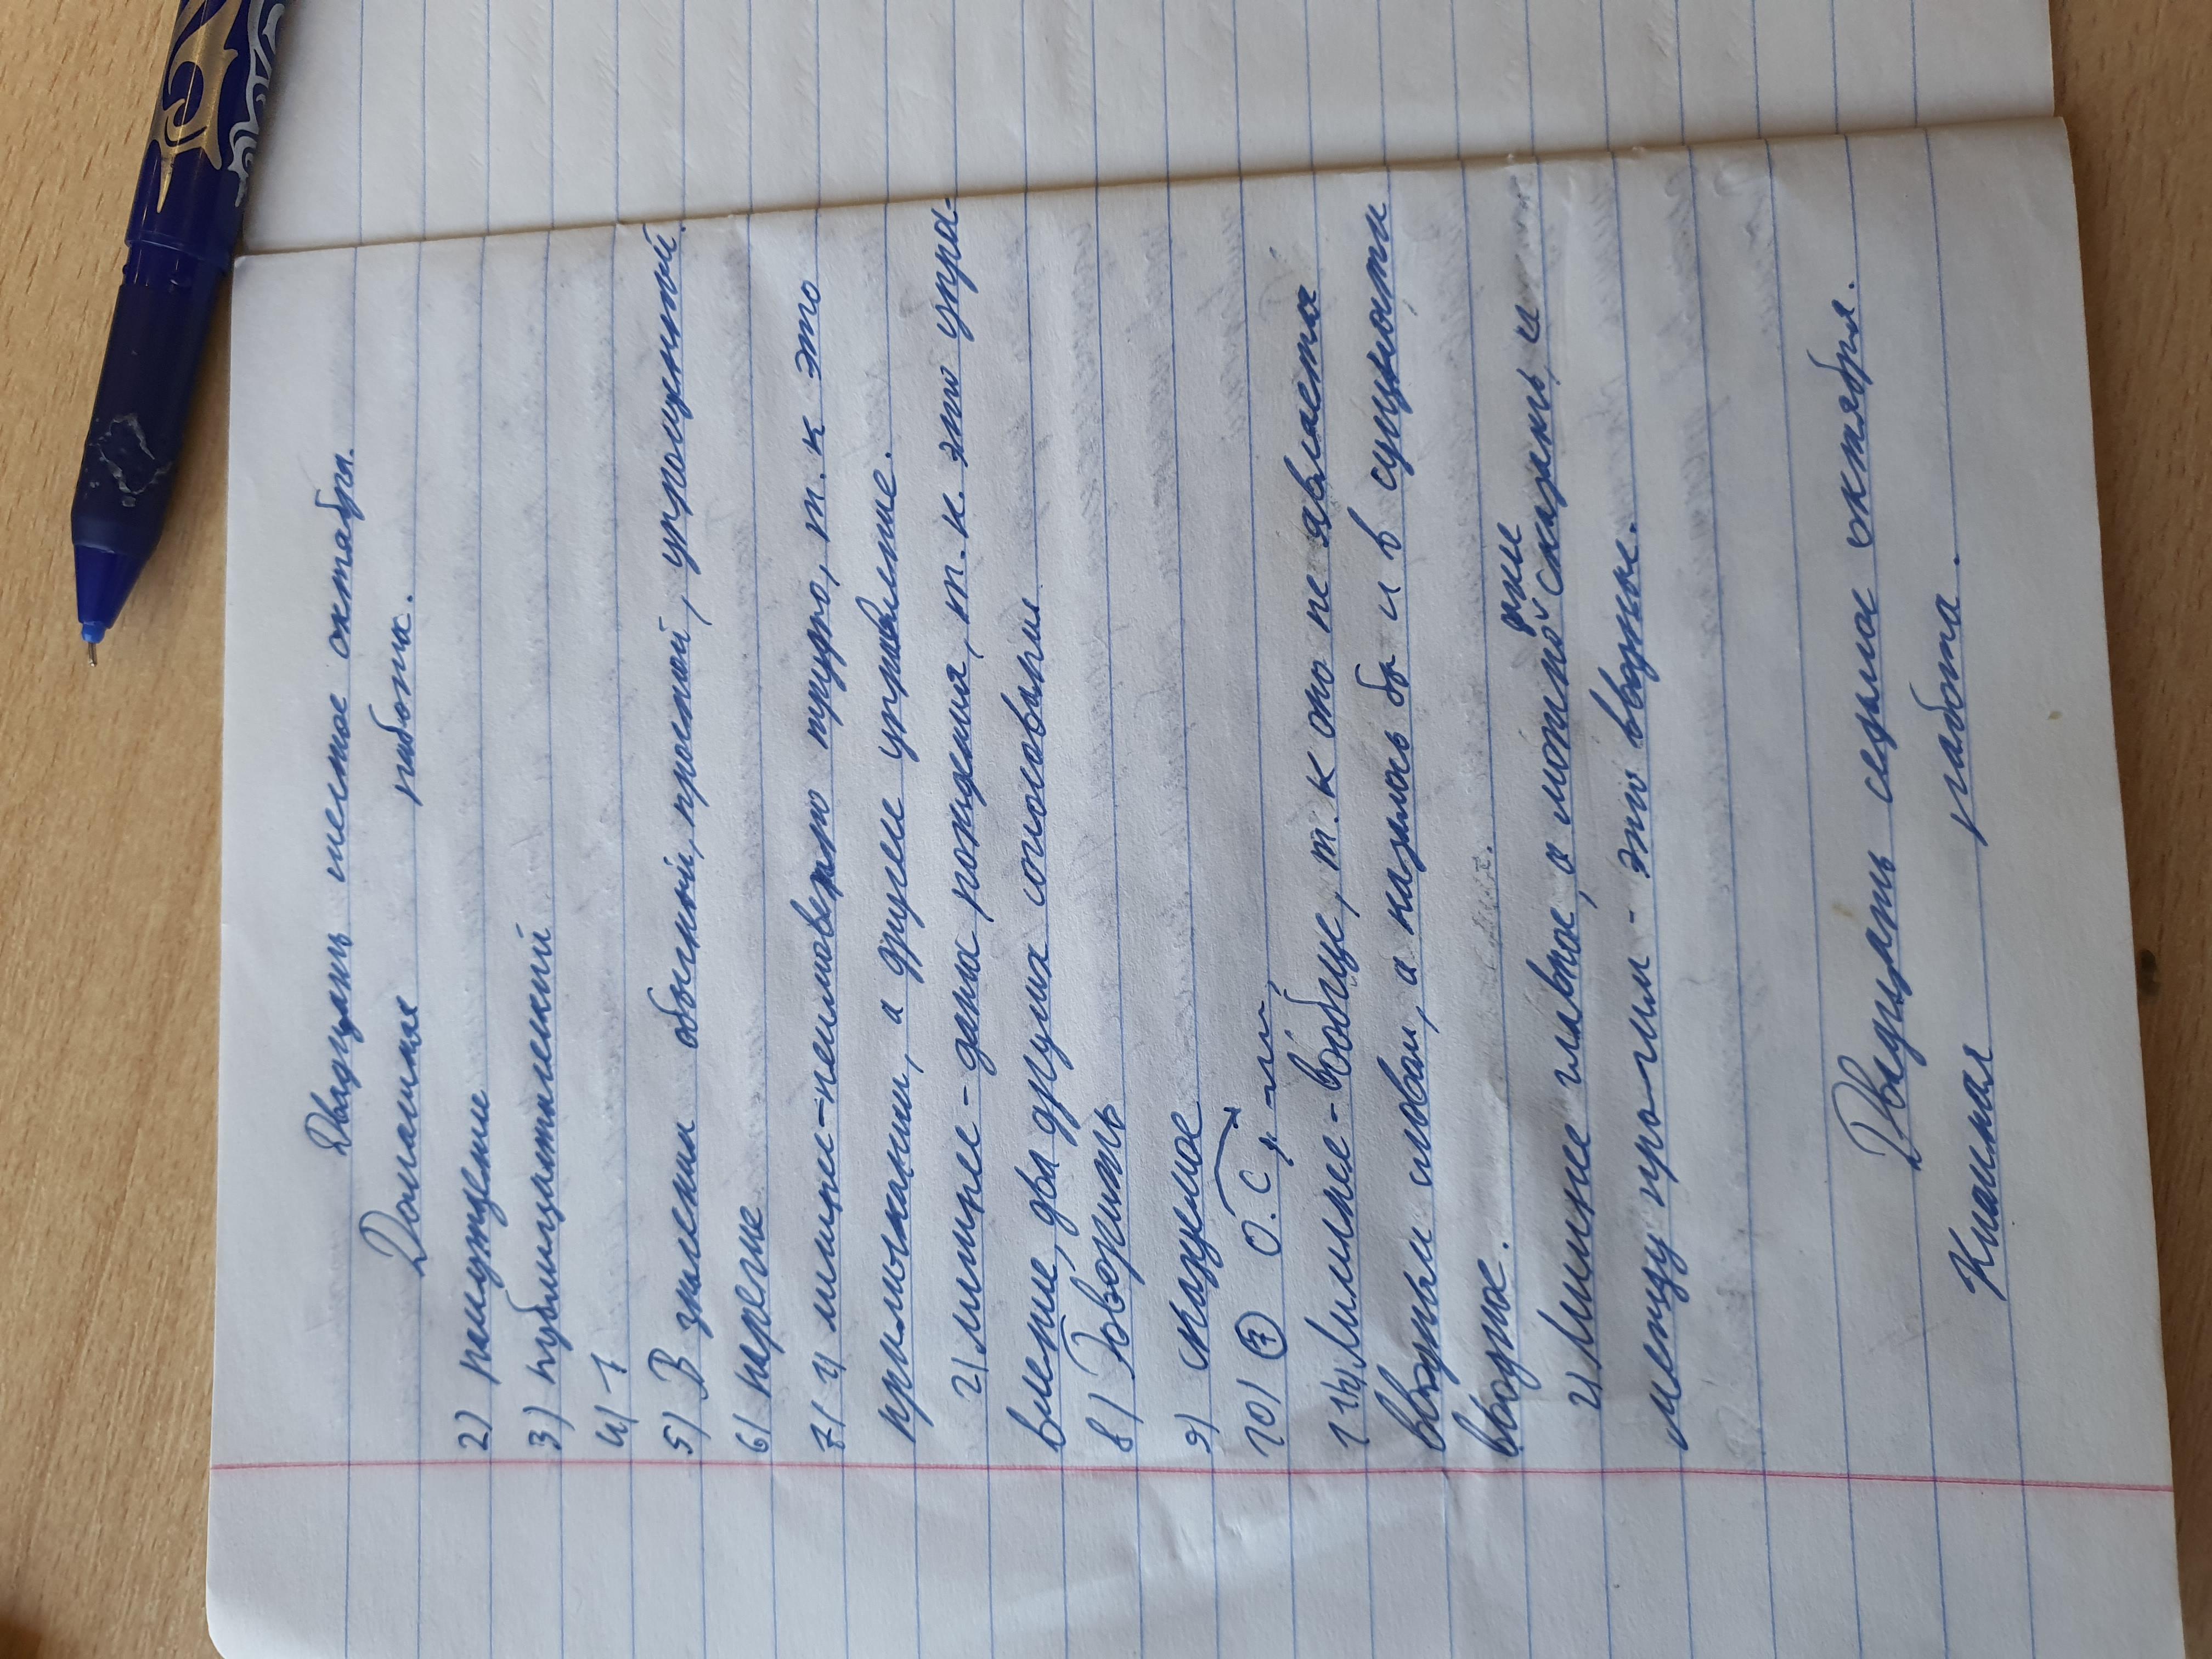 Двадцать шестое октября.
Домашняя работа.
2) рассуждение
3) публицистический
4) 1
5) В значении обычный, простой, упрощенный.
6) наречие
7) 1) лишнее - неимоверно трудно, т. к это
примыкании, а другие управление.
2) лишнее - дана концепция, т. к. это упра-
вление, два других согласования
8) Говорить
9) сказуемое
10) 7 О. С,
11) 1) Лишнее - вообще, т. к оно не является
вводным словом, а казалось бы и в сущности
вводное.
2) Лишнее главное, а можно даже сказать, и
между про-чим - это вводные.
Двадцать седьмое октября.
Классная работа.